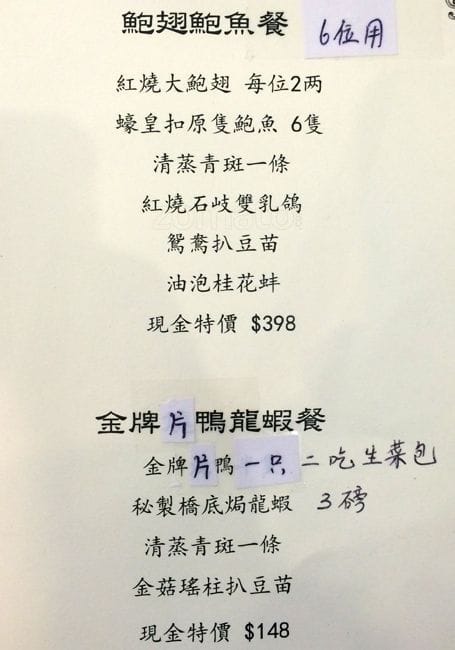 鮑翅鮑魚餐 6位用
紅燒大鮑翅 每位2两
蠔皇扣原隻鮑魚 6隻
清蒸青斑一條
紅燒石岐雙乳鴿
鴛鴦扒豆苗
油泡桂花蚌
現金特價 $398
金牌片鴨龍蝦餐
金牌片鴨一只二吃生菜包
秘製橋底焗龍蝦 3磅
清蒸青斑一條
金菇瑤柱扒豆苗
現金特價 $148